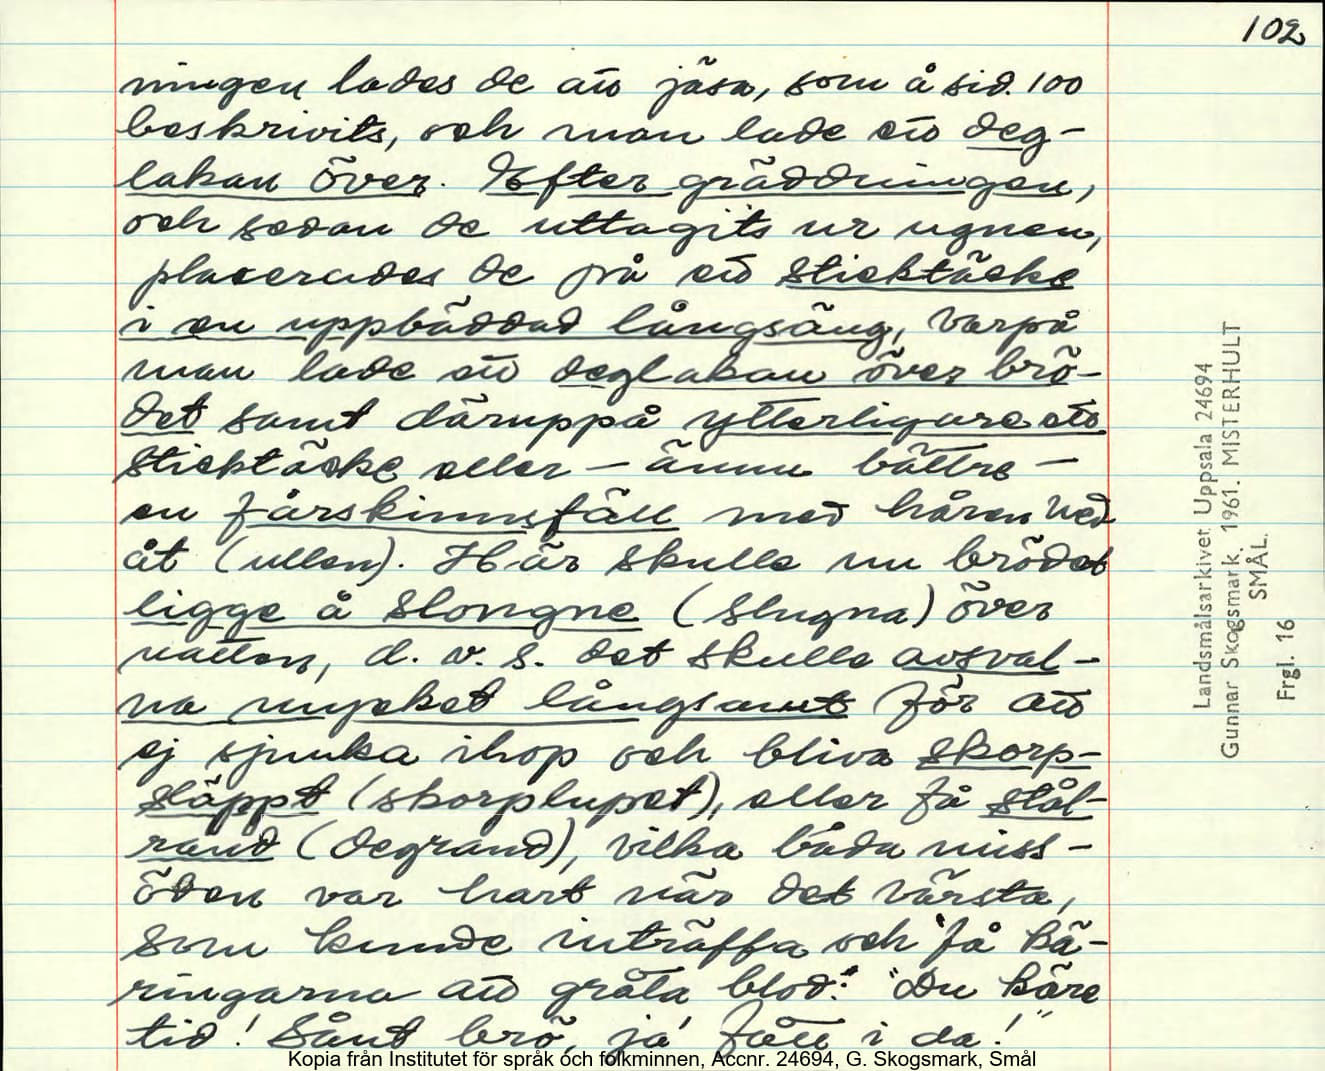 102
ningen lades de att jäsa, som å sid. 100
beskrivits, och man lade ett deg-
lakan över. Efter gräddningen,
och sedan de uttagits ur ugnen,
placerades de på ett sticktäcke
i en uppbäddad långsäng, varpå
man lade ett deglakan över brö-
det samt däruppå ytterligare ett
sticktäcke eller – ännu bättre –
en fårskinnsfäll med håren ned
åt (ullen). Här skulle nu brödet
ligge å slongne (slugna) över
natten, d. v. s. det skulle avsval-
na mycket långsamt för att
ej sjunka ihop och bliva skorp-
släppt (skorplupet), eller få stål-
rand (degrand), vilka båda miss-
öden var hart när det värsta,
som kunde inträffa och "få kä-
ringarna att gråta blod": "Du käre
tid! Sånt brö, ja' fått i da!"
Landsmålsarkivet Uppsala 24694
Gunnar Skogsmark. 1961. MISTERHULT
SMÅL.
Frgl. 16
Kopia från Institutet för språk och folkminnen, Accnr. 24694, G. Skogsmark, Smål